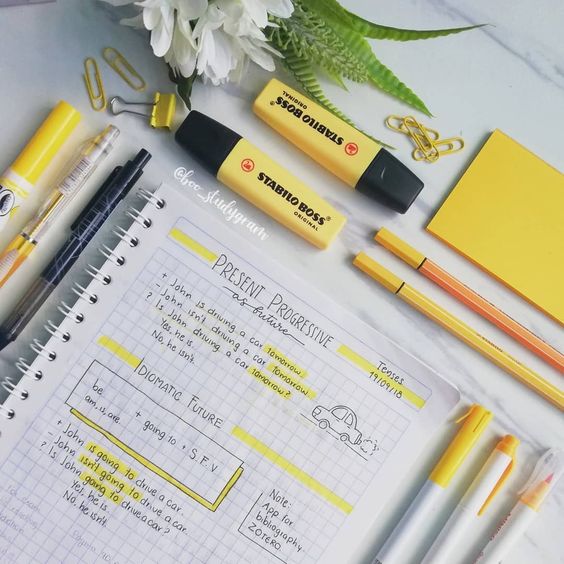 STABILO BOSS
ORIGINAL
STABILO BOSS
ORIGINAL
@boo_studygram
PRESENT PROGRESSIVE
as future
Tenses
19/09/18
+ John is driving a car tomorrow.
- John isn't driving a car tomorrow.
? Is John driving a car tomorrow?
Yes, he is.
No, he isn't.
IDIOMATIC FUTURE
be
am, is, are
+ going to + S.F.V
+ John is going to drive a car.
- John isn't going to drive a car.
? Is John going to drive a car?
Yes, he is.
No, he isn't.
Note:
App for
bibliography
ZOTERO